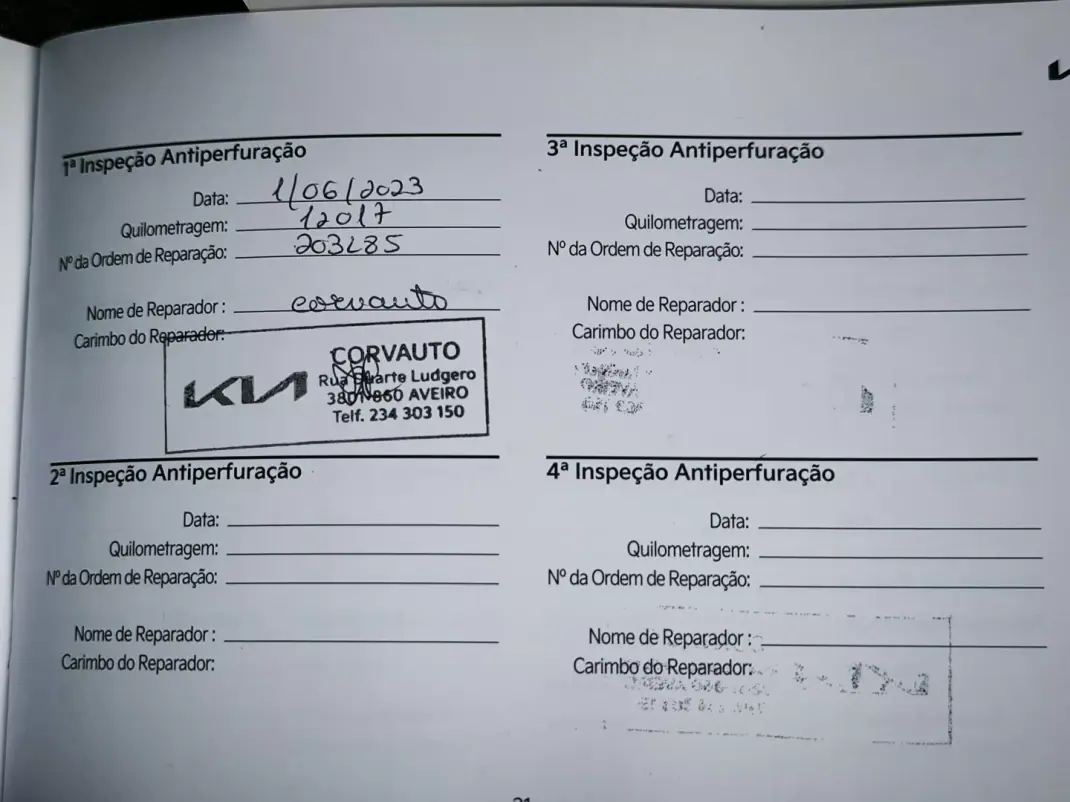 1ª Inspeção Antiperfuração
Data: 1/06/2023
Quilometragem: 12017
Nº da Ordem de Reparação: 203285
Nome de Reparador : corvauto
Carimbo do Reparador:
KIA
CORVAUTO
Rua Duarte Ludgero
3801-860 AVEIRO
Telf. 234 303 150
2ª Inspeção Antiperfuração
Data:
Quilometragem:
Nº da Ordem de Reparação:
Nome de Reparador :
Carimbo do Reparador:
3ª Inspeção Antiperfuração
Data:
Quilometragem:
Nº da Ordem de Reparação:
Nome de Reparador :
Carimbo do Reparador:
4ª Inspeção Antiperfuração
Data:
Quilometragem:
Nº da Ordem de Reparação:
Nome de Reparador :
Carimbo do Reparador: